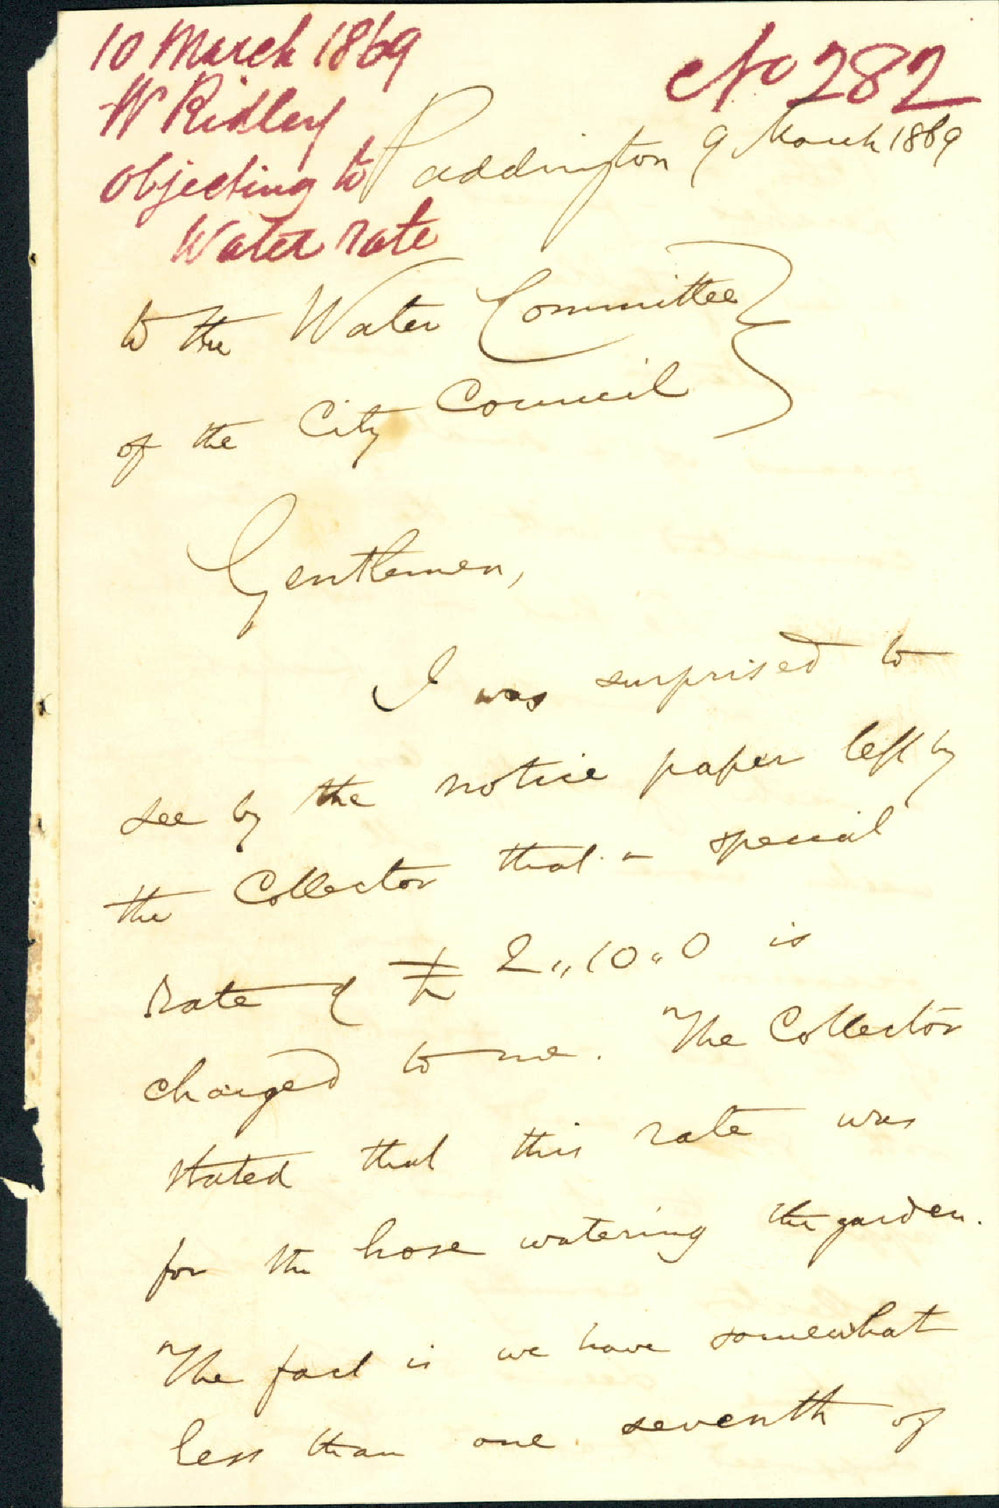 10 March 1869
W Ridley
objecting to
Water rate
No 282
Paddington 9 March 1869
to the Water Committee
of the City Council
Gentlemen,
I was surprised to
see by the notice paper left by
the Collector that a special
rate of £ 2,,10,,0 is
charged to me. The Collector
stated that this rate was
for the hose watering the garden.
The fact is we have somewhat
less than one seventh of